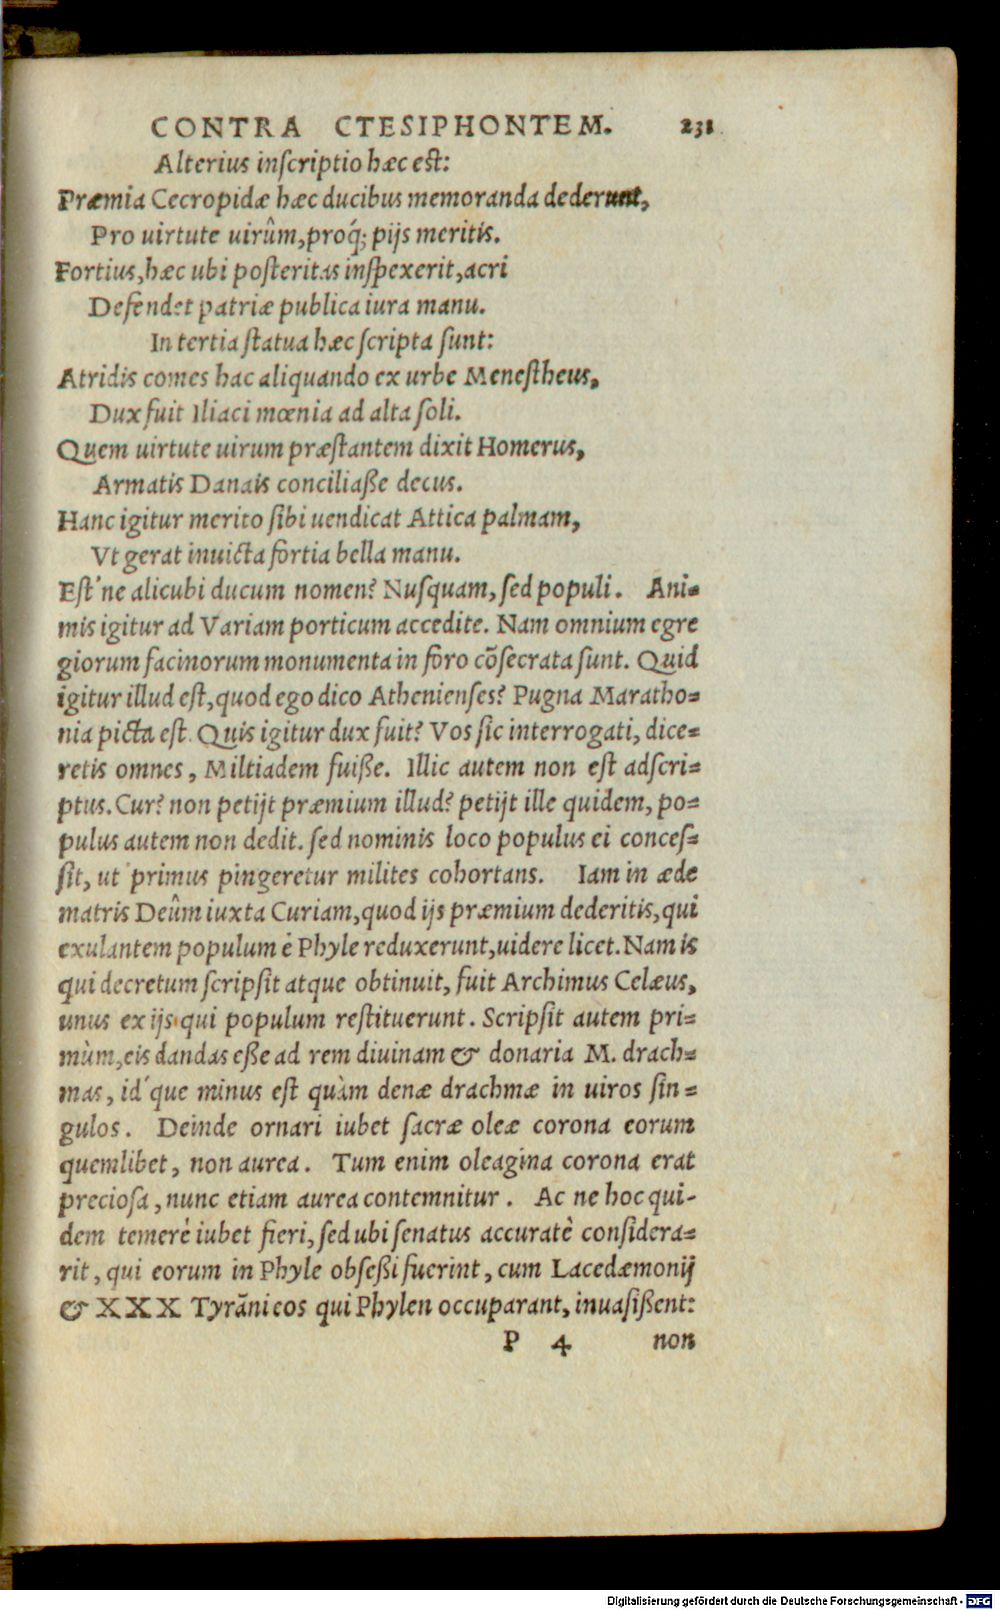 CONTRA CTESIPHONTEM. 231
Alterius inſcriptio hæc eſt:
Præmia Cecropidæ hæc ducibus memoranda dederunt,
Pro uirtute uirûm, proq́; pijs meritis.
Fortius, hæc ubi poſteritas inſpexerit, acri
Defendet patriæ publica iura manu.
In tertia ſtatua hæc ſcripta ſunt:
Atridis comes hac aliquando ex urbe Meneſtheus,
Dux fuit Iliaci mœnia ad alta ſoli.
Quem uirtute uirum præſtantem dixit Homerus,
Armatis Danais conciliaſſe decus.
Hanc igitur merito ſibi uendicat Attica palmam,
Vt gerat inuicta fortia bella manu.
Eſt'ne alicubi ducum nomen? Nuſquam, ſed populi. Ani=
mis igitur ad Variam porticum accedite. Nam omnium egre
giorum facinorum monumenta in foro cõſecrata ſunt. Quid
igitur illud eſt, quod ego dico Athenienſes? Pugna Maratho=
nia picta eſt. Quis igitur dux fuit? Vos ſic interrogati, dice=
retis omnes, Miltiadem fuiſſe. Illic autem non eſt adſcri=
ptus. Cur? non petijt præmium illud? petijt ille quidem, po=
pulus autem non dedit. ſed nominis loco populus ei conceſ=
ſit, ut primus pingeretur milites cohortans. Iam in æde
matris Deûm iuxta Curiam, quod ijs præmium dederitis, qui
exulantem populum è Phyle reduxerunt, uidere licet. Nam is
qui decretum ſcripſit atque obtinuit, fuit Archimus Celæus,
unus ex ijs qui populum reſtituerunt. Scripſit autem pri=
mùm, eis dandas eſſe ad rem diuinam & donaria M. drach=
mas, id'que minus eſt quàm denæ drachmæ in uiros ſin=
gulos. Deinde ornari iubet ſacræ oleæ corona eorum
quemlibet, non aurea. Tum enim oleagina corona erat
precioſa, nunc etiam aurea contemnitur. Ac ne hoc qui-
dem temerè iubet fieri, ſed ubi ſenatus accuratè conſidera=
rit, qui eorum in Phyle obſeſſi fuerint, cum Lacedæmonij
& XXX Tyrãni eos qui Phylen occuparant, inuaſiſſent:
P 4 non
Digitalisierung gefördert durch die Deutsche Forschungsgemeinschaft - DFG